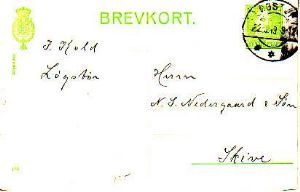 BREVKORT.
J. Hold
Løgstør
Herrn
N. S. Nedergaard & Søn
Skive